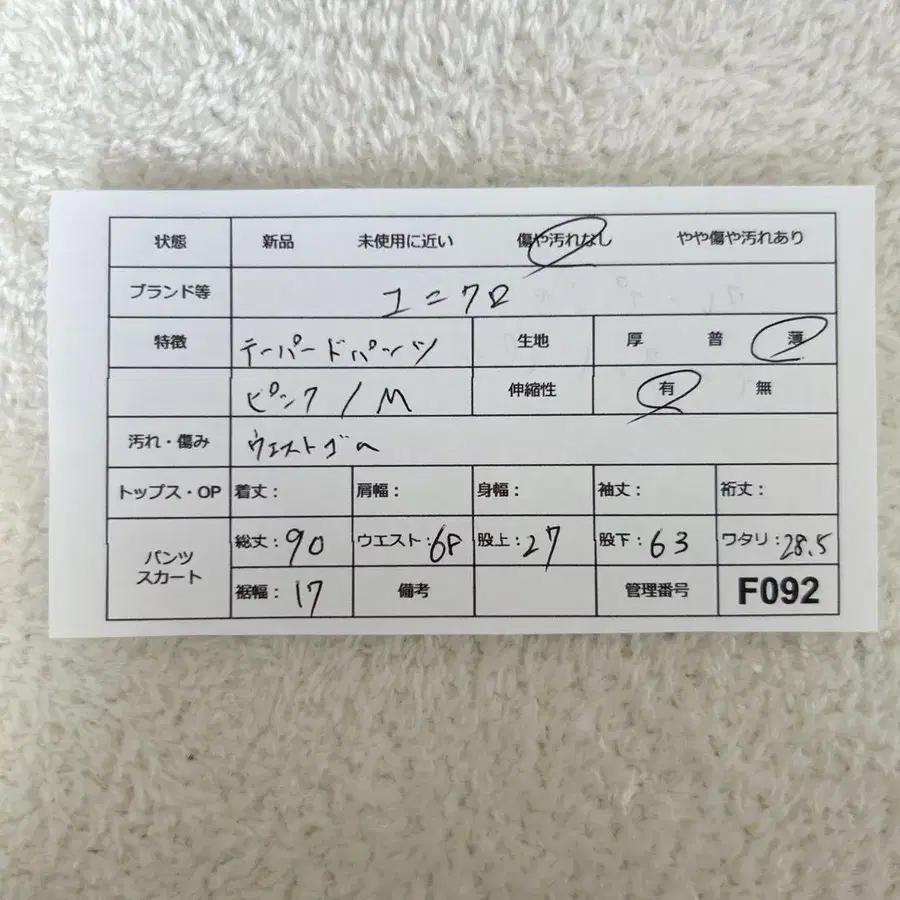 状態 新品 未使用に近い 傷や汚れなし やや傷や汚れあり
ブランド等 ユニクロ
特徴 テーパードパンツ 生地 厚 普 薄
ピンク/M 伸縮性 有 無
汚れ・傷み ウエストゴム
トップス・OP 着丈: 肩幅: 身幅: 袖丈: 裄丈:
パンツ スカート 総丈:90 ウエスト:68 股上:27 股下:63 ワタリ:28.5
裾幅:17 備考 管理番号 F092